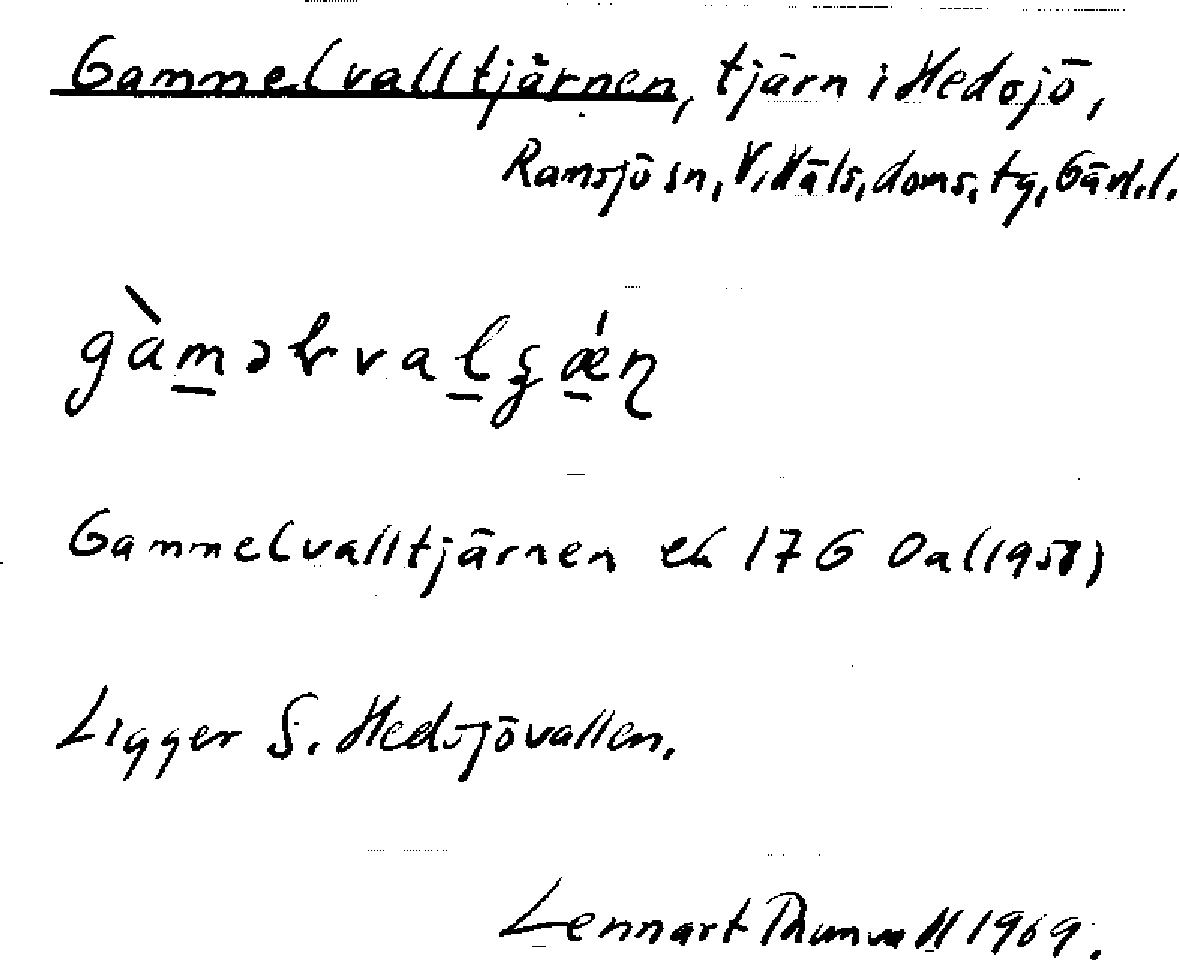 Gammelvalltjärnen, tjärn i Hedsjö,
Ramsjö sn, V. Häls. doms. tg, Gävl. l.
Gammelvalltjärnen ek 17G 0a (1958)
Ligger S. Hedsjövallen.
Lennart Thunvall 1969.